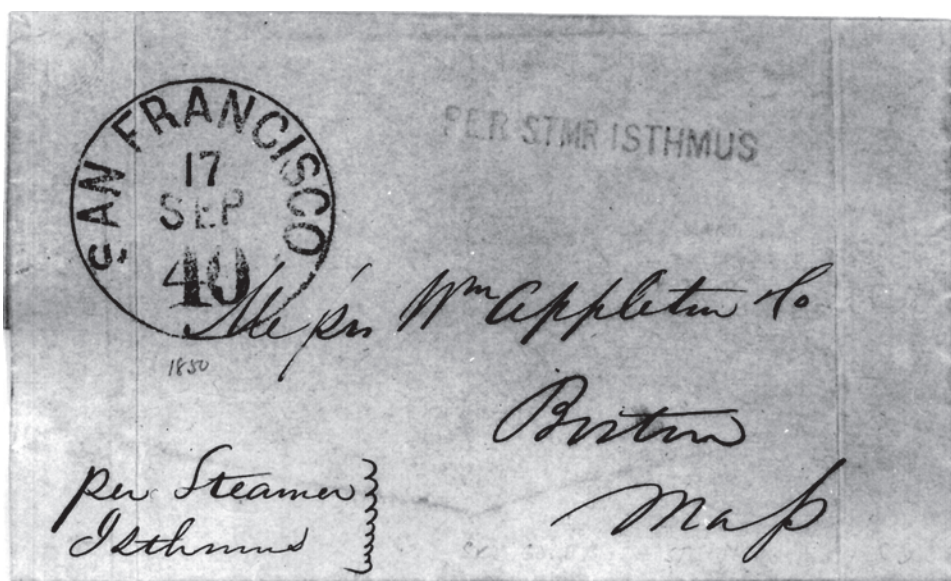 SAN FRANCISCO
17
SEP
40
PER STMR ISTHMUS
Messrs Wm Appleton & Co
1850
Boston
Mass
per Steamer
Isthmus